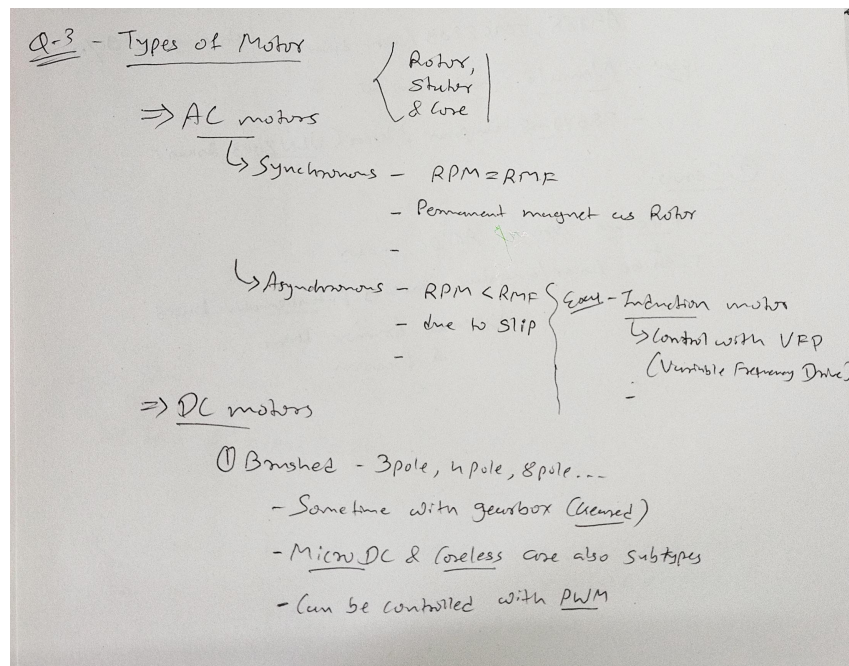 Q-3 - Types of Motor
Rotor,
Stator
& Core
⇒ AC motors
↳ Synchronous - RPM = RMF
- Permanent magnet as Rotor
-
↳ Asynchronous - RPM < RMF
- due to slip
-
Exa - Induction motor
↳ Control with VFD
(Variable Frequency Drive)
-
⇒ DC motors
① Brushed - 3pole, npole, 8pole...
- Sometime with gearbox (Geared)
- Micro DC & Coreless are also subtypes
- Can be controlled with PWM